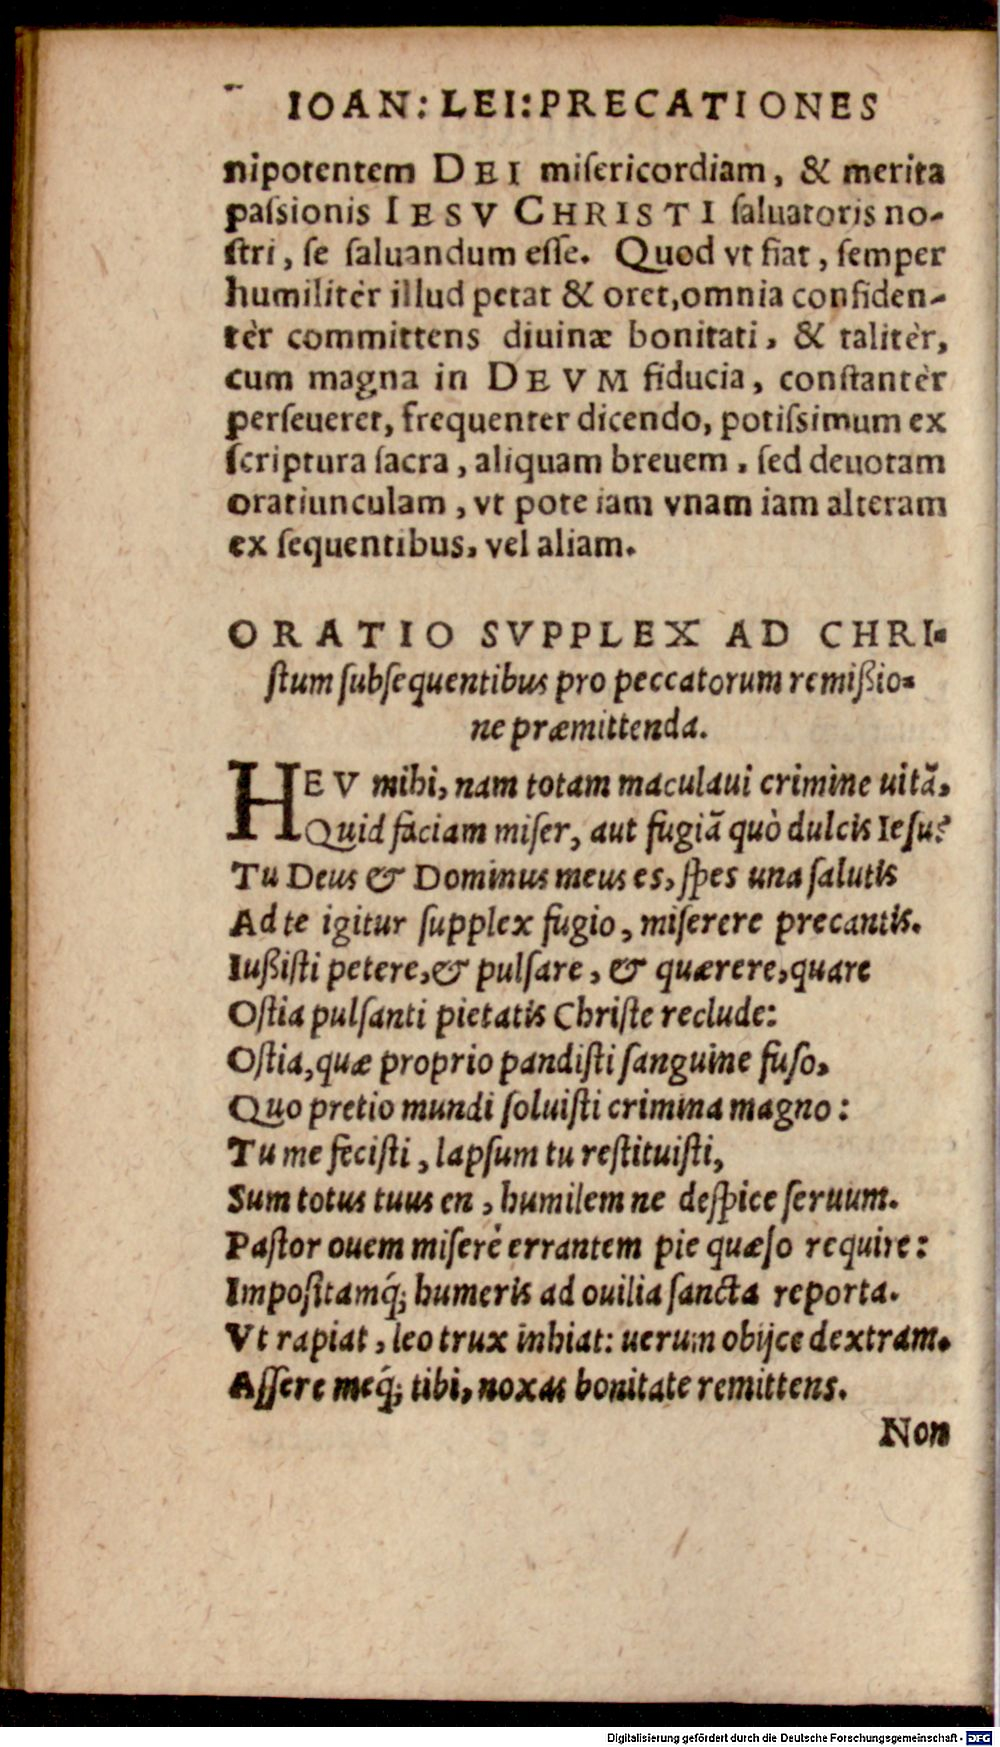 IOAN: LEI: PRECATIONES
nipotentem DEI miſericordiam, & merita
paſsionis IESV CHRISTI ſaluatoris no-
ſtri, ſe ſaluandum eſſe. Quod vt fiat, ſemper
humilitèr illud petat & oret, omnia confiden-
tèr committens diuinæ bonitati, & talitèr,
cum magna in DEVM fiducia, conſtantèr
perſeueret, frequenter dicendo, potiſsimum ex
ſcriptura ſacra, aliquam breuem, ſed deuotam
oratiunculam, vt pote iam vnam iam alteram
ex ſequentibus, vel aliam.
ORATIO SVPPLEX AD CHRI-
ſtum ſubſequentibus pro peccatorum remißio-
ne præmittenda.
HEV mihi, nam totam maculaui crimine uitã,
Quid faciam miſer, aut fugiã quò dulcis Ieſu?
Tu Deus & Dominus meus es, ſpes una ſalutis
Ad te igitur ſupplex fugio, miſerere precantis.
Iußiſti petere, & pulſare, & quærere, quare
Oſtia pulſanti pietatis Chriſte reclude:
Oſtia, quæ proprio pandiſti ſanguine fuſo,
Quo pretio mundi ſoluiſti crimina magno:
Tu me feciſti, lapſum tu reſtituiſti,
Sum totus tuus en, humilem ne deſpice ſeruum.
Paſtor ouem miſerè errantem pie quæſo require:
Impoſitamq́; humeris ad ouilia ſancta reporta.
Vt rapiat, leo trux inhiat: uerum obijce dextram.
Aſſere meq́; tibi, noxas bonitate remittens.
Non
Digitalisierung gefördert durch die Deutsche Forschungsgemeinschaft - DFG